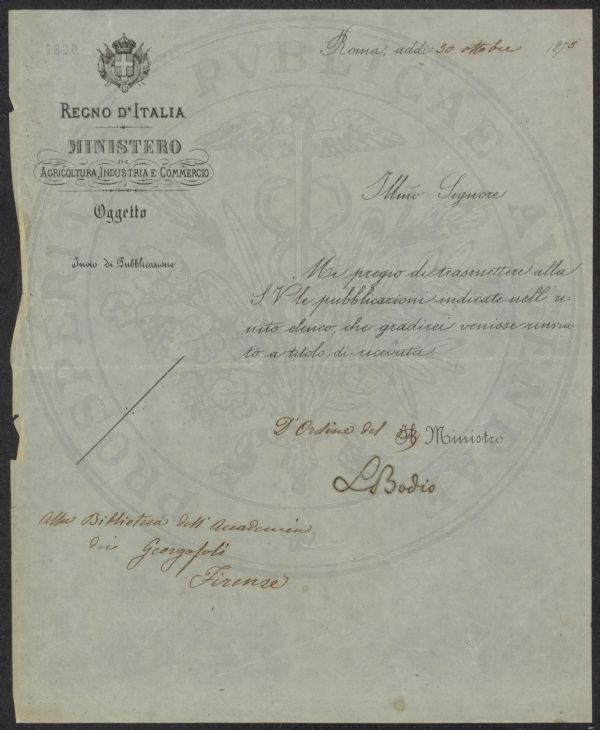 1820
Roma, addì 30 ottobre 1873
REGNO D'ITALIA
MINISTERO
DI
AGRICOLTURA, INDUSTRIA E COMMERCIO
Oggetto
Invio di Pubblicazione
Illmo Signore
Mi pregio di trasmettere alla
S. V. le pubblicazioni indicate nell' u-
nito elenco, che gradirei venisse rinvia-
to a titolo di ricevuta.
D'Ordine del Il Ministro
L Bodio
Alla Biblioteca dell' Accademia
dei Georgofili
Firenze
PUBLICAE